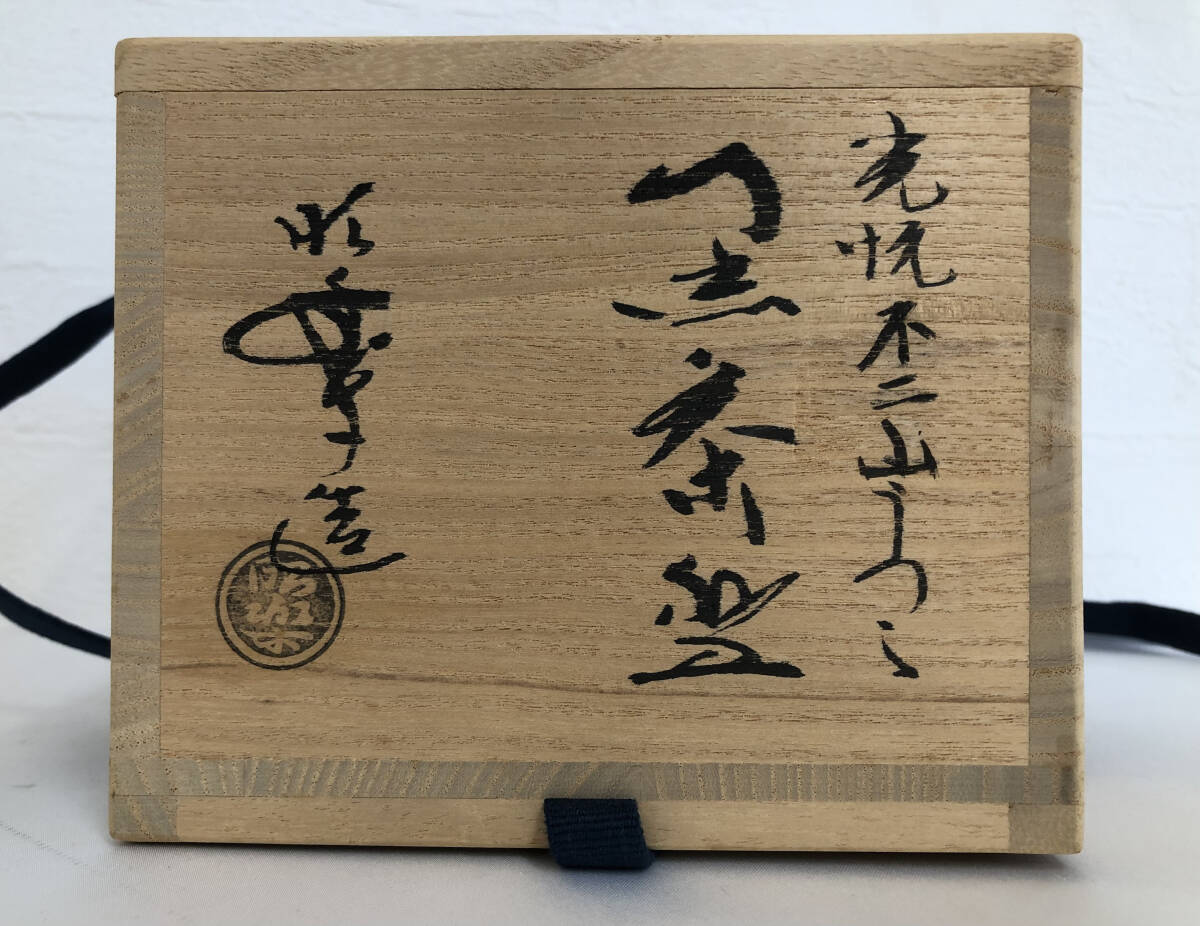 光悦不二山うつし
黒茶碗
昭楽造
昭楽